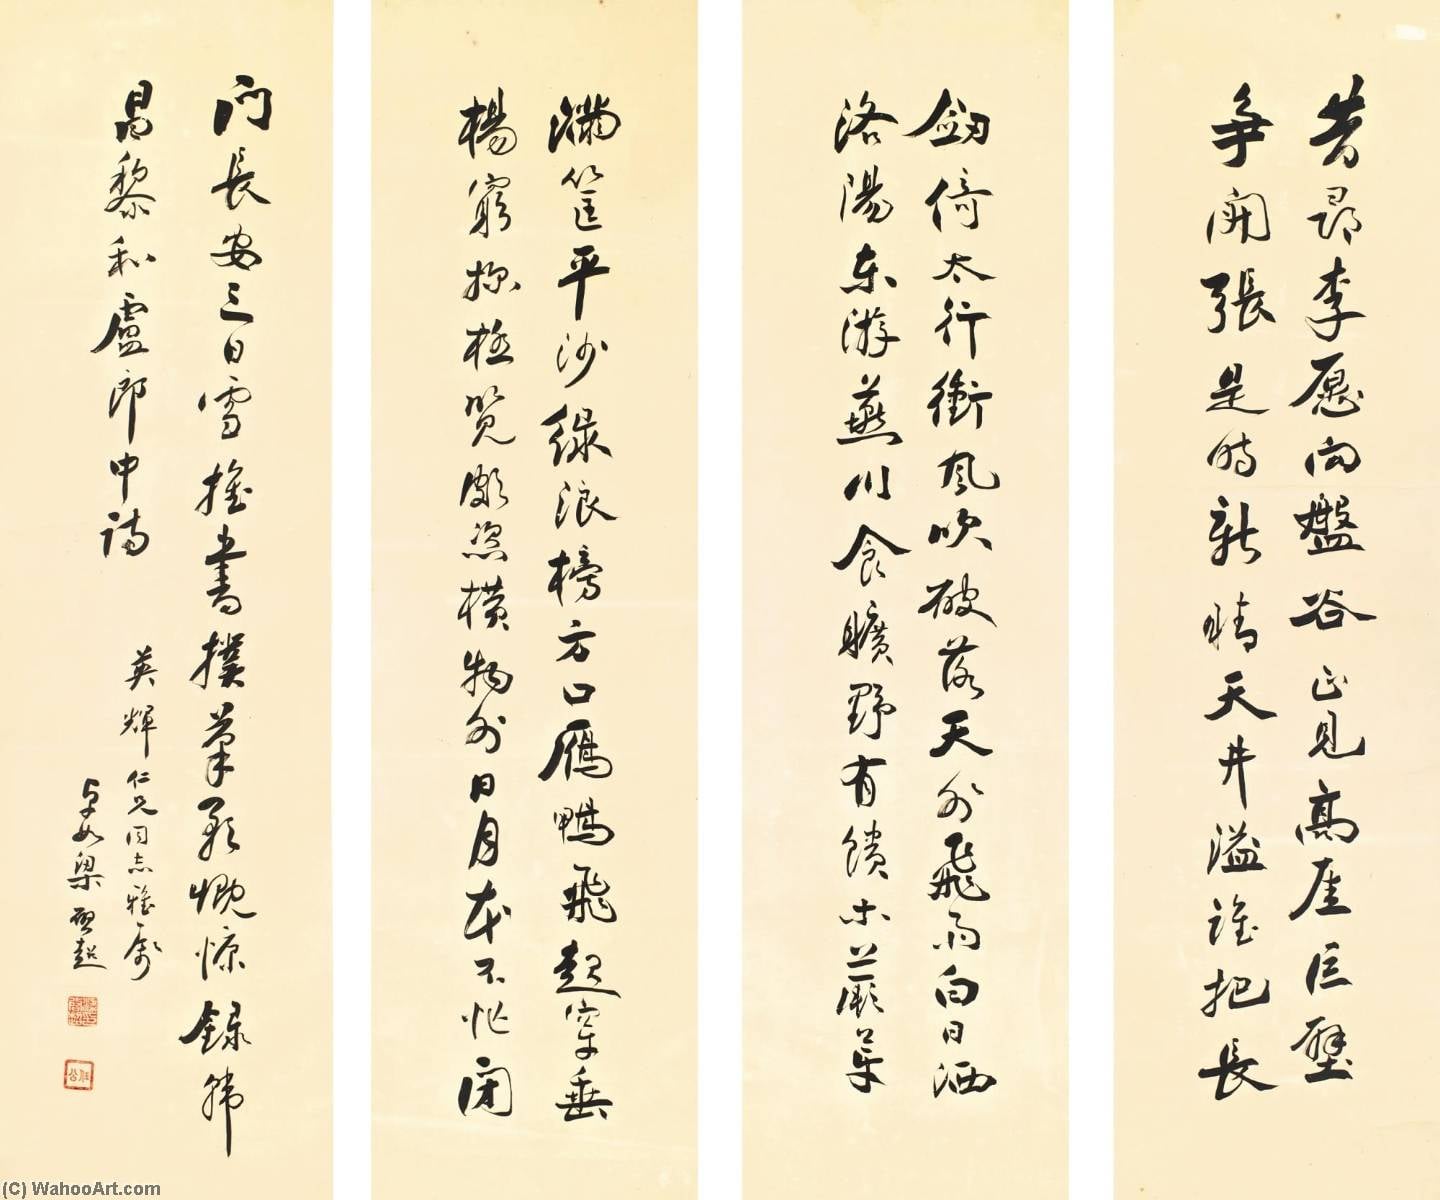 昔尋李愿向盤谷正見高崖巨壁
爭開張是時新晴天井溢誰把長
劒倚太行衝風吹破落天外飛雨白日洒
洛陽東游燕川食曠野有饋木蕨芽
滿筐平沙綠浪榜方口鴈鴨飛起穿垂
楊窮探極覽頗恣橫物外日月本不忙閉
門長安三日雪推書撲筆歌慨慷錄韓
昌黎和盧郎中詩
英輝仁兄同志雅屬
卓如梁啟超
任公
(C) WahooArt.com